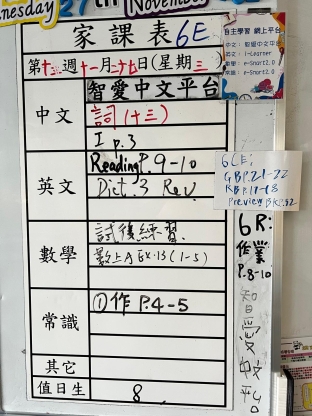 nesday
27th
November
家課表 6E
自主學習 網上平台
中文：智愛中文平台
英文：i-Learner
數學：e-Smart2.0
常識：e-Smart2.0
第十三週十一月二十七日(星期三)
中文
智愛中文平台
詞(十三)
I p.3
英文
Reading P.9-10
Dict.3 Rev
6CE:
GBP.21-22
Preview BkP.52
數學
試後練習
數上A Ex.13(1-5)
6R:
作業
P.8-10
常識
①作 P.4-5
智愛中文平台
其它
值日生
8